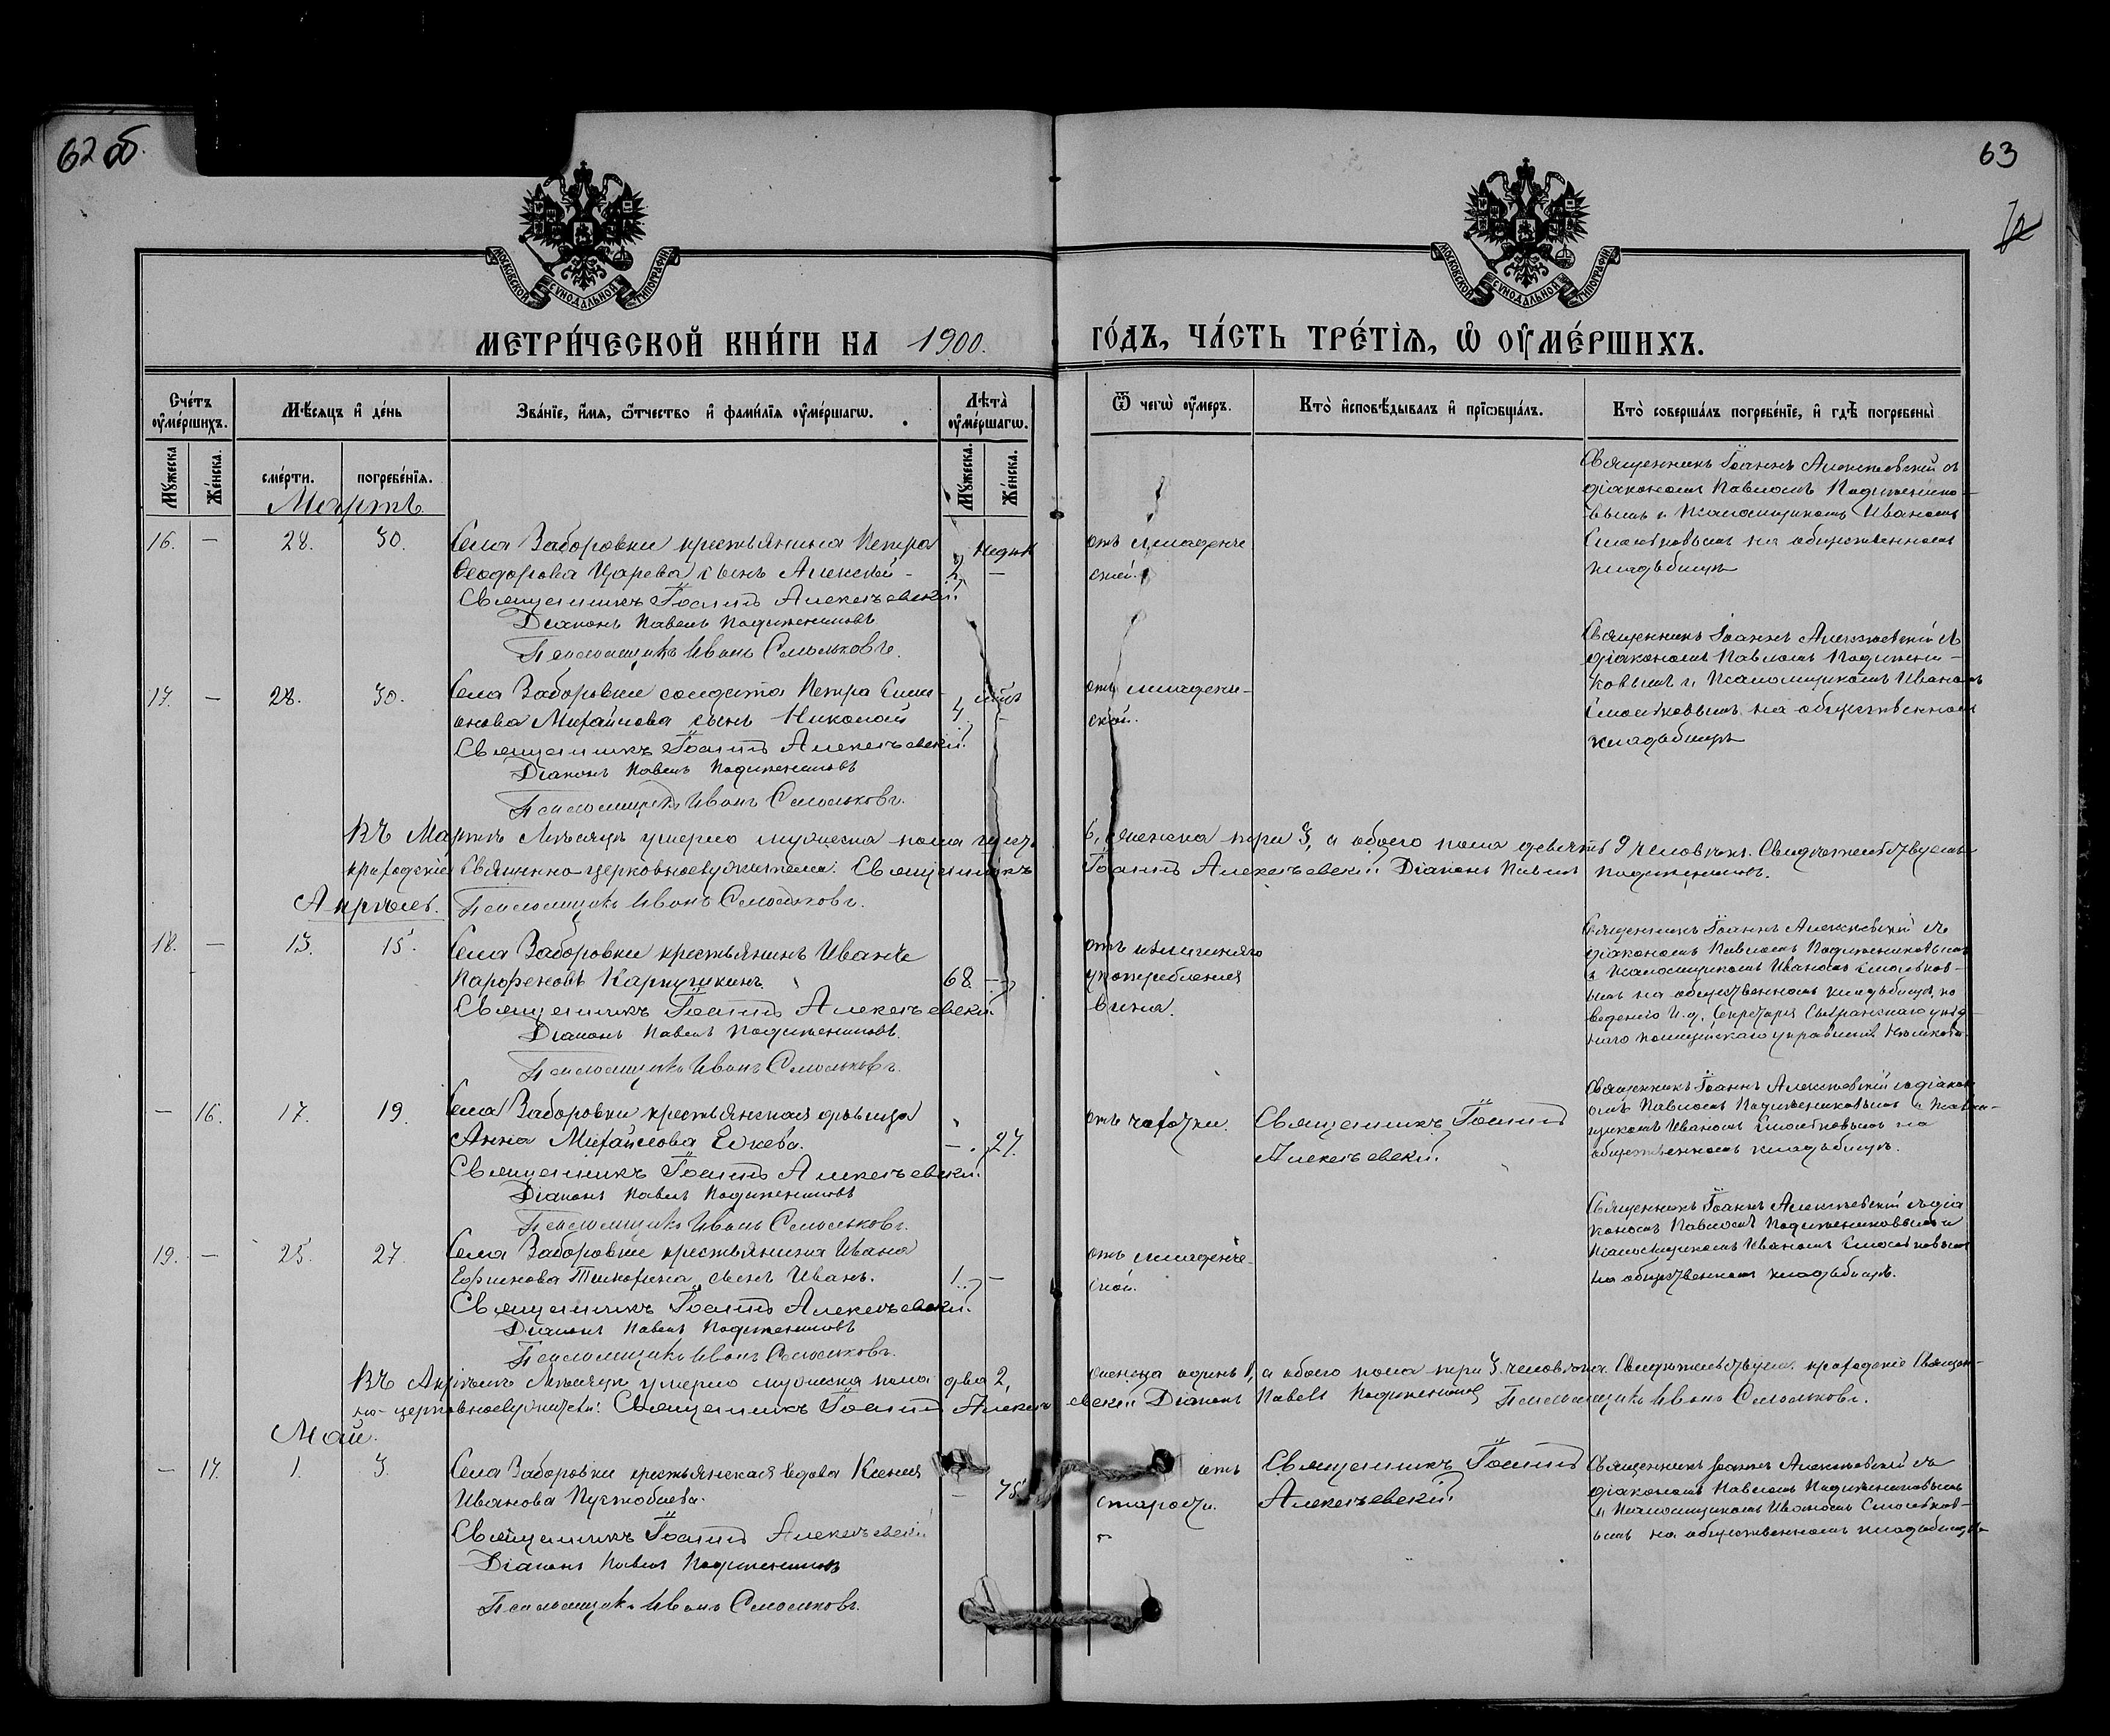 62 об.
63
МОСКОВСКОЙ СѴНОДАЛЬНОЙ ТИПОГРАФІИ
МОСКОВСКОЙ СѴНОДАЛЬНОЙ ТИПОГРАФІИ
МЕТРИ́ЧЕСКОЙ КНИ́ГИ НА 1900.
ГО́ДЪ, ЧА́СТЬ ТРЕ́ТІѦ, Ѡ ОУМЕ́РШИХЪ.
Сче́тъ оуме́ршихъ.
Мѣ́сяцъ и де́нь
Зва́нїе, и́мя, ѻ́тчество и фами́лїя оуме́ршагѡ.
Лѣта̀ оуме́ршагѡ.
Ѿ чегѡ̀ оу́меръ.
Кто̀ исповѣ́дывалъ и прїѡбща́лъ.
Кто̀ соверша́лъ погребе́нїе, и гдѣ̀ погребены̀
Му́жеска
Же́нска.
сме́рти.
погребе́нїя.
Му́жеска.
Же́нска.
Мартъ
16. — 28. 30.
Села Заборовки крестьянина Петра
Ѳеодорова Царева, сынъ Алексѣй —
2 недѣл —
Священникъ Іоаннъ Алексѣевскій.
Діаконъ Павелъ
Псаломщикъ Иванъ Смольковъ.
отъ младенче
ской.
Священникъ Іоаннъ Алексѣевскій съ
діакономъ Павломъ
и Псаломщикомъ Иваномъ
Смольковымъ на общественномъ
кладбищѣ
17. — 28. 30.
Села Заборовки солдата Петра Сими-
онова Михайлова сынъ Николай
4 мѣс. —
Священникъ Іоаннъ Алексѣевскій.
Діаконъ Павелъ
Псаломщикъ Иванъ Смольковъ.
отъ младенче-
ской.
Священникъ Іоаннъ Алексѣевскій съ
діакономъ Павломъ
и Псаломщикомъ Иваномъ
Смольковымъ на общественномъ
кладбищѣ
Въ Мартѣ Мѣсяцѣ умерло мужеска пола шесть 6, женска три 3, а обоего пола девять 9 человѣкъ. Свидѣтельствуемъ
Священно-церковнослужители: Священникъ Іоаннъ Алексѣевскій Діаконъ Павелъ
Псаломщикъ Иванъ Смольковъ.
Апрѣль.
18. — 13. 15.
Села Заборовки крестьянинъ Иванъ
Парфеновъ
68. —
Священникъ Іоаннъ Алексѣевскій.
Діаконъ Павелъ
Псаломщикъ Иванъ Смольковъ.
отъ излишняго
употребленія
вина.
Священникъ Іоаннъ Алексѣевскій съ
діакономъ Павломъ
и Псаломщикомъ Иваномъ Смольков-
ымъ на общественномъ кладбищѣ, по
И. д. Секретаря Сызранскаго уѣзд-
наго полицейскаго управленія
— 16. 17. 19.
Села Заборовки крестьянская дѣвица
Анна Михайлова
— 27.
Священникъ Іоаннъ Алексѣевскій.
Діаконъ Павелъ
Псаломщикъ Иванъ Смольковъ.
отъ чахотки.
Священникъ Іоаннъ
Алексѣевскій.
Священникъ Іоаннъ Алексѣевскій съ діакон
омъ Павломъ и Псалом-
щикомъ Иваномъ Смольковымъ на
общественномъ кладбищѣ.
19. — 25. 27.
Села Заборовки крестьянина Ивана
сынъ Иванъ.
1. —
Священникъ Іоаннъ Алексѣевскій.
Діаконъ Павелъ
Псаломщикъ Иванъ Смольковъ.
отъ младенче-
ской.
Священникъ Іоаннъ Алексѣевскій съ діа
кономъ Павломъ и
Псаломщикомъ Иваномъ Смольковымъ
на общественномъ кладбищѣ.
Въ Апрѣлѣ Мѣсяцѣ умерло мужеска пола два 2, женска одинъ 1, а обоего пола три 3 человѣка.
но-церковнослужители: Священникъ Іоаннъ Алексѣевскій Діаконъ Павелъ Псаломщикъ Иванъ Смольковъ.
Май.
— 17. 1. 3.
Села Заборовки крестьянская вдова Ксенія
Иванова
— 75
Священникъ Іоаннъ Алексѣевскій
Діаконъ Павелъ
Псаломщикъ Иванъ Смольковъ.
отъ
старости.
Священникъ Іоаннъ
Алексѣевскій.
Священникъ Іоаннъ Алексѣевскій съ
діакономъ Павломъ
и Псаломщикомъ Иваномъ Смольков-
ымъ на общественномъ кладбищѣ